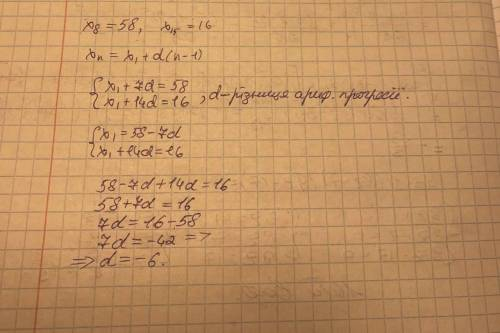 x₈ = 58, x₁₅ = 16
xₙ = x₁ + d(n-1)
{ x₁ + 7d = 58
{ x₁ + 14d = 16 , d - різниця ариф. прогресії.
{ x₁ = 58 - 7d
{ x₁ + 14d = 16
58 - 7d + 14d = 16
58 + 7d = 16
7d = 16 - 58
7d = -42 =>
=> d = -6.